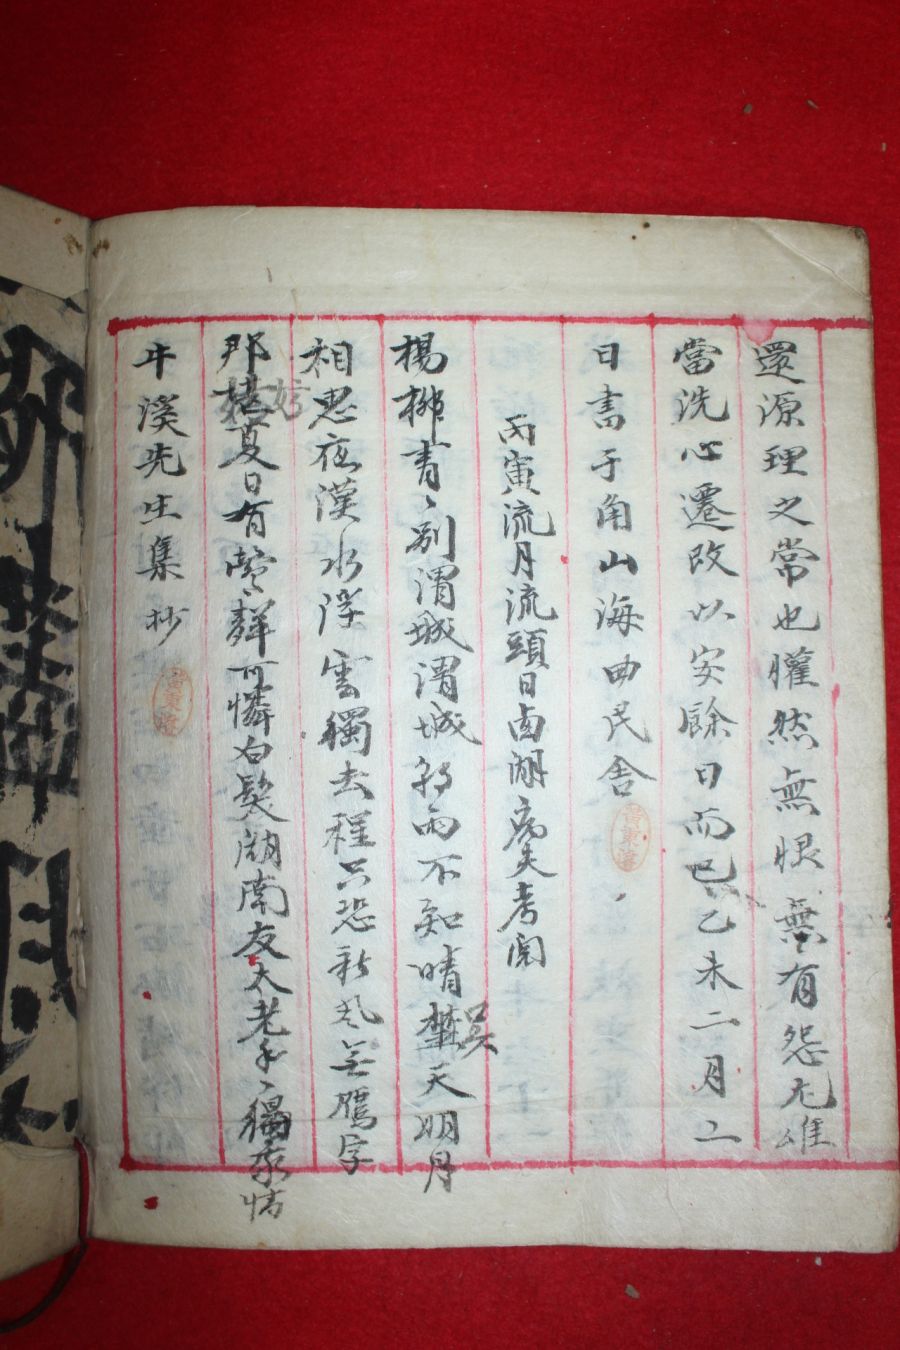 還源理之常也懽然無恨無有怨尤雄
當洗心遷改以安餘日而已乙未二月二
日書于角山海曲民舍
丙寅流月流頭日鹵湖病夫考閱
楊柳青〻別渭城渭城弥雨不知晴楚天明月
吳
相思夜漢水浮雲獨去程只恐秋風無鴈字
那堪夏日有鶯聲可憐白髮湖南友大老無〻獨承情
妨
牛溪先生集抄